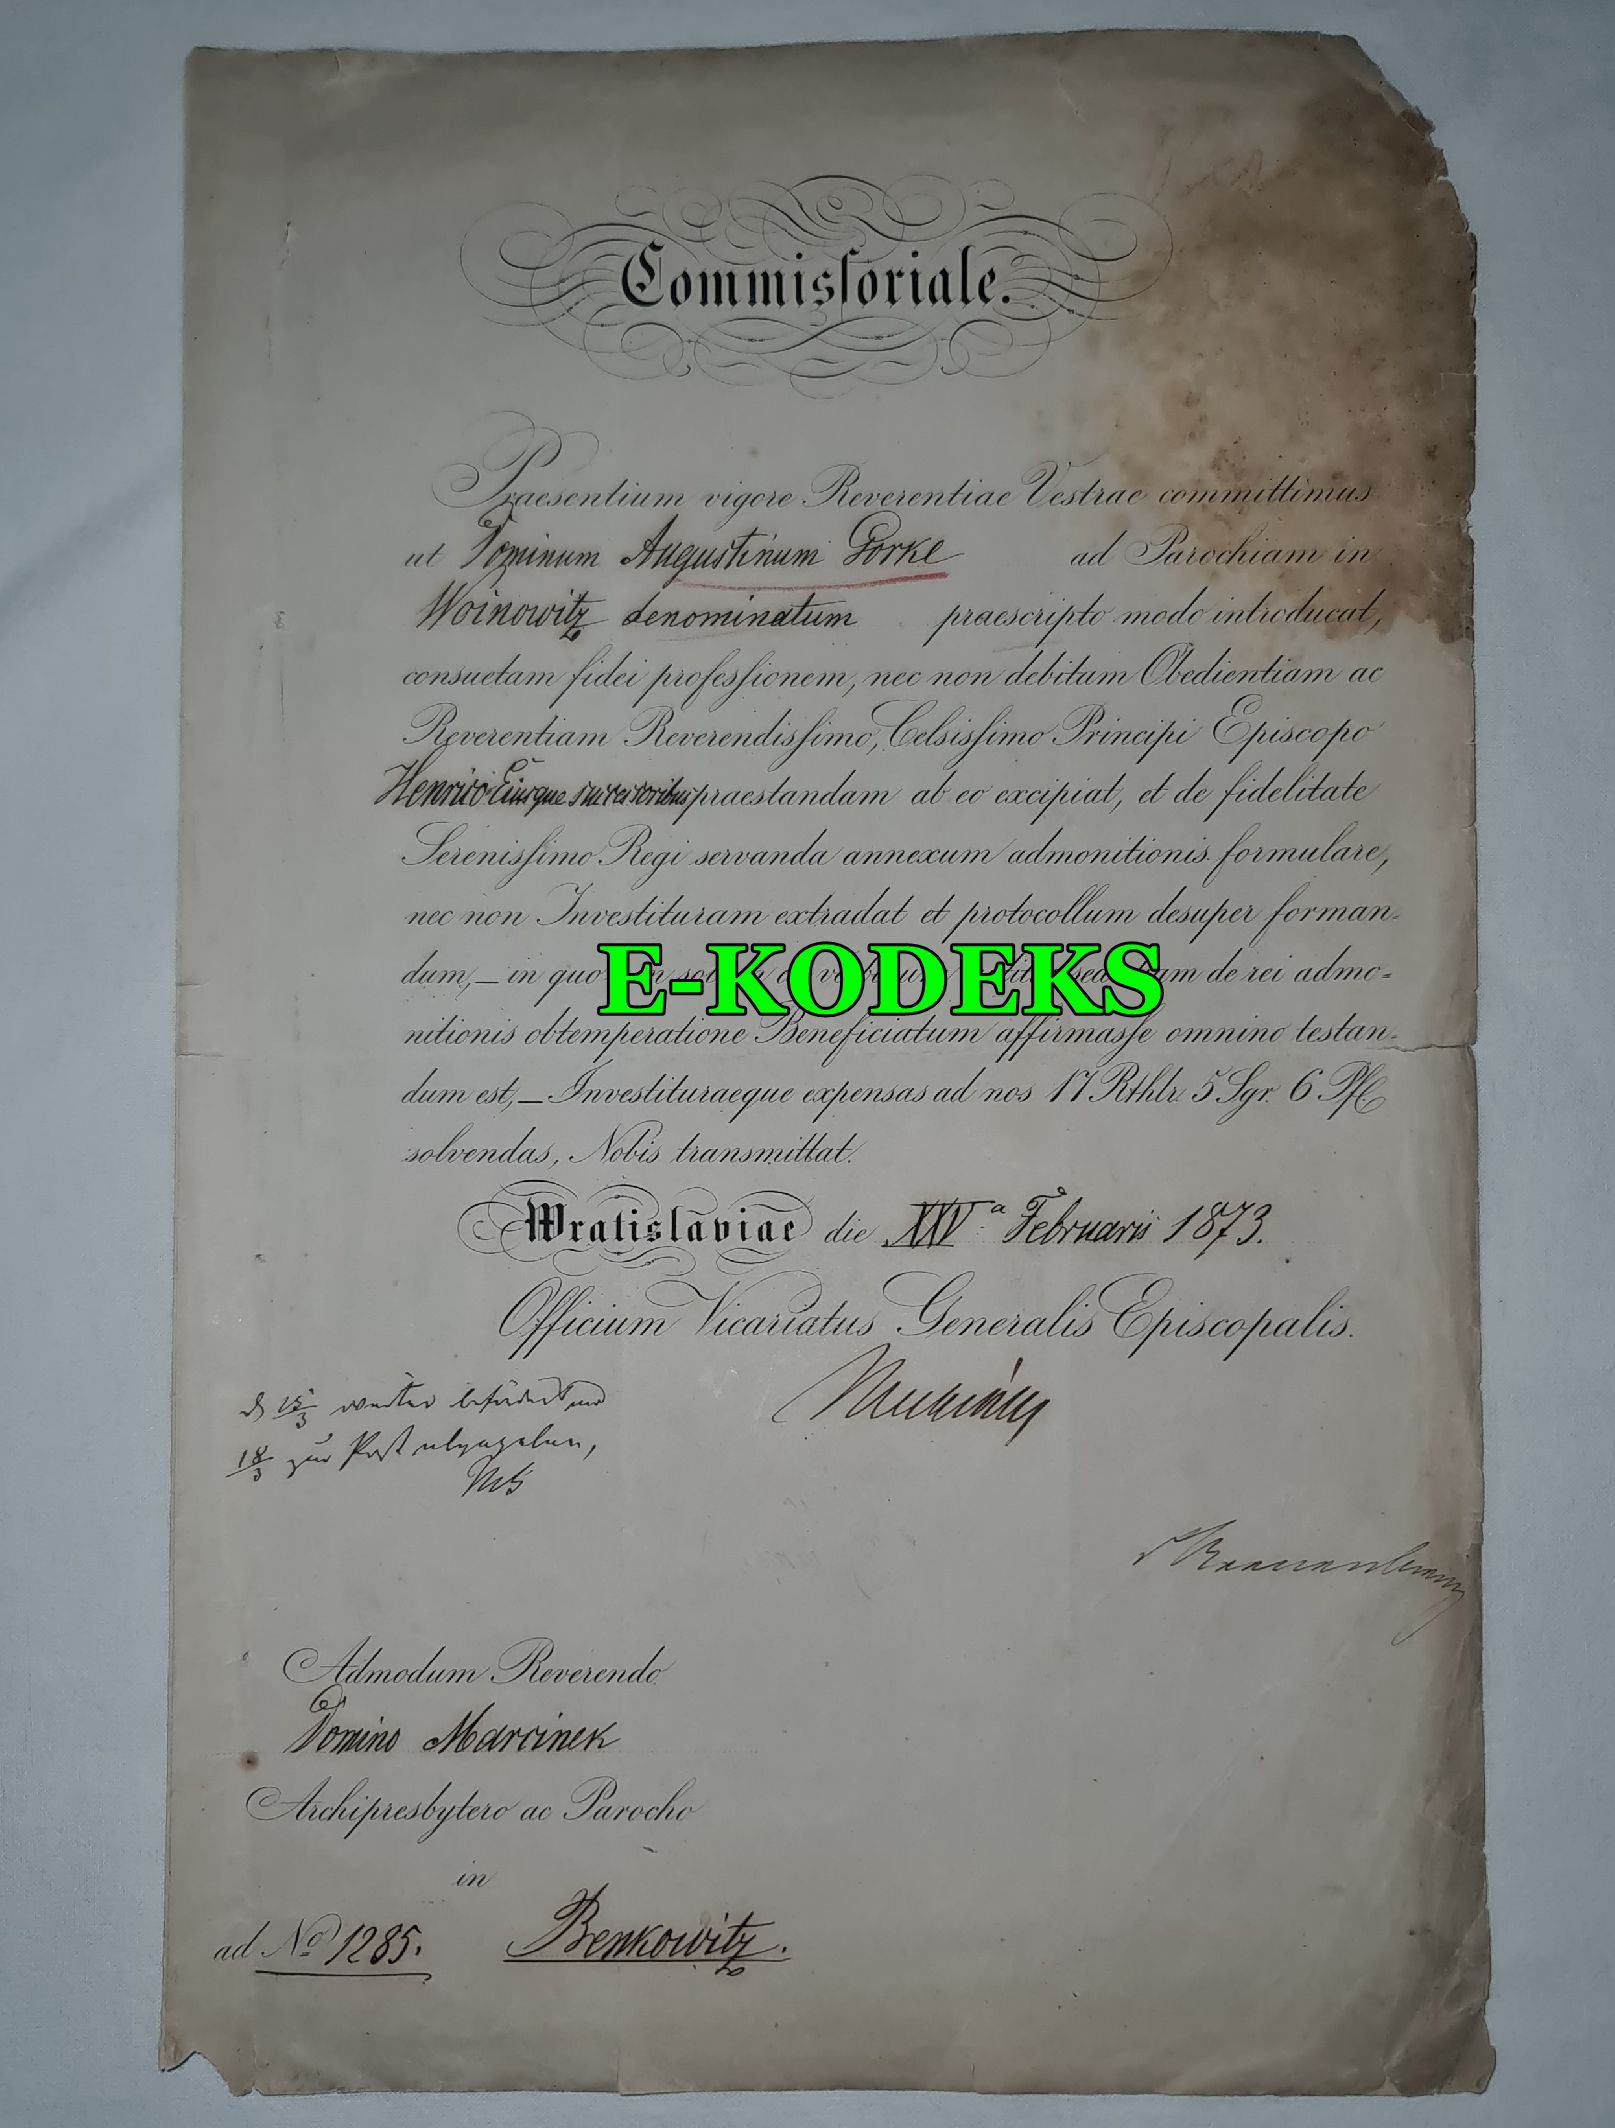 Commisſoriale.
Praesentium vigore Reverentiae Vestrae committimus
ut Dominum Augustinum Gorke ad Parochiam in
Woinowitz denominatum praescripto modo introducat,
consuetam fidei profesſionem, nec non debitam Obedientiam ac
Reverentiam Reverendisſimo, Celsisſimo Principi Episcopo
Henrico Eiusque successoribus praestandam ab eo excipiat, et de fidelitate
Serenisſimo Regi servanda annexum admonitionis formulare,
nec non Investituram extradat et protocollum desuper forman-
dum, — in quo de rei admo-
E-KODEKS
nitionis obtemperatione Beneficiatum affirmasſe omnino testan-
dum est, — Investituraeque expensas ad nos 17 Rthlr. 5 Sgr. 6 Pf
solvendas, Nobis transmittat.
Wratislaviae die XXV.a Februarii 1873.
Officium Vicariatus Generalis Episcopalis.
15/3 weiter befördert und
18/3 zur Post abgegeben,
Admodum Reverendo
Domino Marcinek
Archipresbytero ac Parocho
in
ad No 1285. Benkowitz.